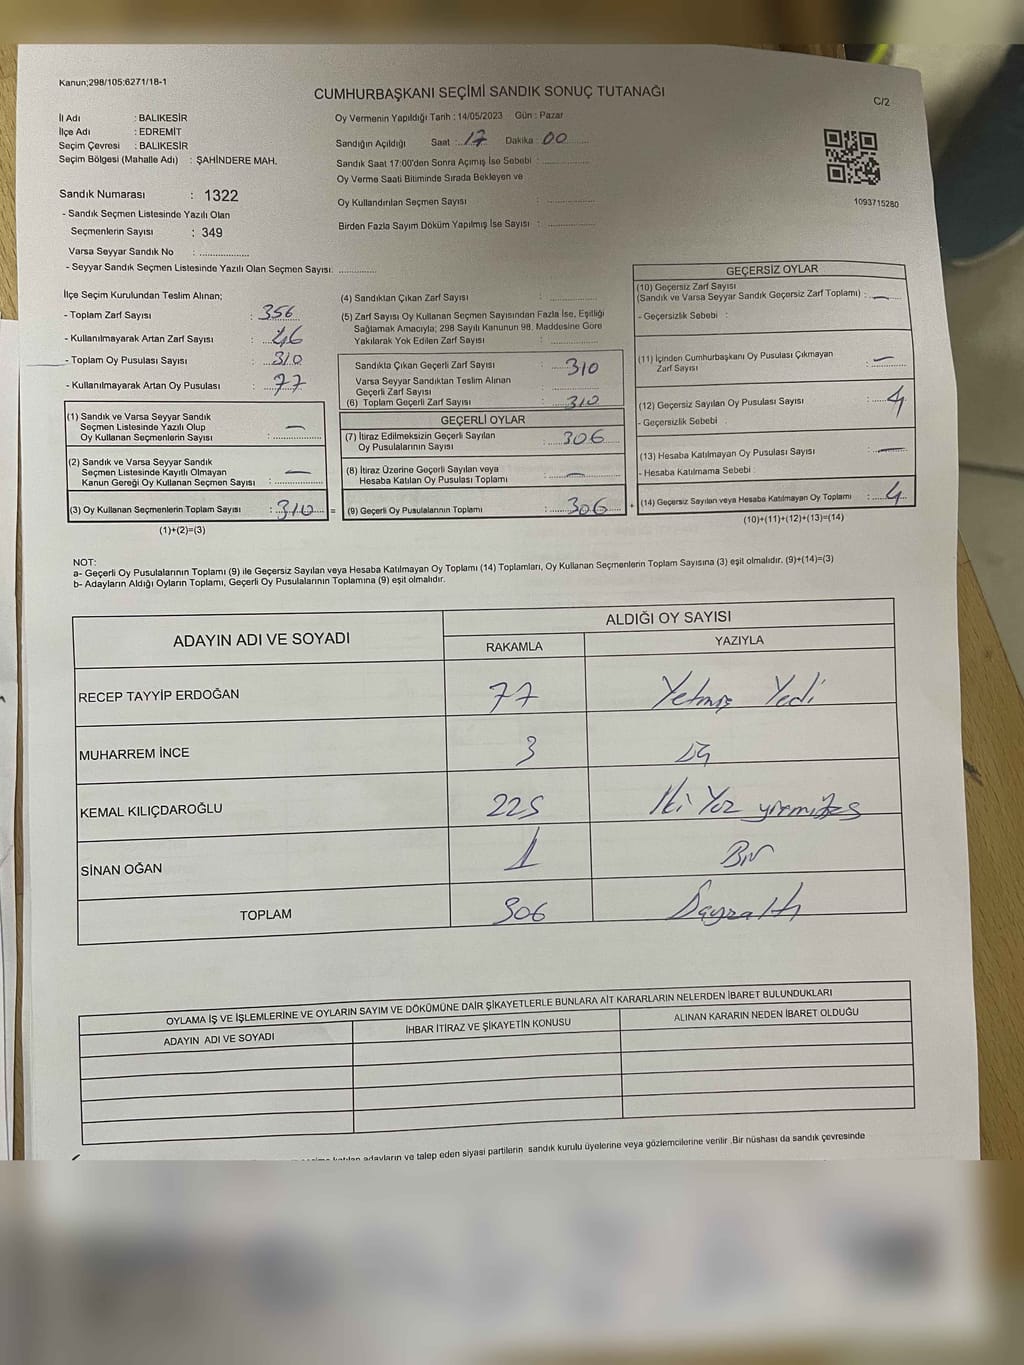 Kanun;298/105:6271/18-1
CUMHURBAŞKANI SEÇİMİ SANDIK SONUÇ TUTANAĞI
C/2
İl Adı : BALIKESİR
İlçe Adı : EDREMİT
Seçim Çevresi : BALIKESİR
Seçim Bölgesi (Mahalle Adı) : ŞAHİNDERE MAH.
Oy Vermenin Yapıldığı Tarih : 14/05/2023 Gün : Pazar
Sandığın Açıldığı Saat : 17 Dakika : 00
Sandık Saat 17:00'den Sonra Açımış İse Sebebi : ................
Oy Verme Saati Bitiminde Sırada Bekleyen ve
Oy Kullandırılan Seçmen Sayısı : ................
Birden Fazla Sayım Döküm Yapılmış İse Sayısı : ................
1093715280
Sandık Numarası : 1322
- Sandık Seçmen Listesinde Yazılı Olan
Seçmenlerin Sayısı : 349
Varsa Seyyar Sandık No : ................
- Seyyar Sandık Seçmen Listesinde Yazılı Olan Seçmen Sayısı: ............
İlçe Seçim Kurulundan Teslim Alınan;
- Toplam Zarf Sayısı : 356
- Kullanılmayarak Artan Zarf Sayısı : 46
- Toplam Oy Pusulası Sayısı : 310
- Kullanılmayarak Artan Oy Pusulası : 77
(1) Sandık ve Varsa Seyyar Sandık
Seçmen Listesinde Yazılı Olup
Oy Kullanan Seçmenlerin Sayısı : —
(2) Sandık ve Varsa Seyyar Sandık
Seçmen Listesinde Kayıtlı Olmayan
Kanun Gereği Oy Kullanan Seçmen Sayısı : —
(3) Oy Kullanan Seçmenlerin Toplam Sayısı : 310 =
(1)+(2)=(3)
(4) Sandıktan Çıkan Zarf Sayısı : ................
(5) Zarf Sayısı Oy Kullanan Seçmen Sayısından Fazla İse, Eşitliği
Sağlamak Amacıyla; 298 Sayılı Kanunun 98. Maddesine Göre
Yakılarak Yok Edilen Zarf Sayısı : ................
Sandıkta Çıkan Geçerli Zarf Sayısı : 310
Varsa Seyyar Sandıktan Teslim Alınan
Geçerli Zarf Sayısı : ................
(6) Toplam Geçerli Zarf Sayısı : 310
GEÇERLİ OYLAR
(7) İtiraz Edilmeksizin Geçerli Sayılan
Oy Pusulalarının Sayısı : 306
(8) İtiraz Üzerine Geçerli Sayılan veya
Hesaba Katılan Oy Pusulası Toplamı : —
(9) Geçerli Oy Pusulalarının Toplamı : 306 +
GEÇERSİZ OYLAR
(10) Geçersiz Zarf Sayısı
(Sandık ve Varsa Seyyar Sandık Geçersiz Zarf Toplamı) : —
- Geçersizlik Sebebi :
(11) İçinden Cumhurbaşkanı Oy Pusulası Çıkmayan
Zarf Sayısı : —
(12) Geçersiz Sayılan Oy Pusulası Sayısı : 4
- Geçersizlik Sebebi :
(13) Hesaba Katılmayan Oy Pusulası Sayısı : —
- Hesaba Katılmama Sebebi :
(14) Geçersiz Sayılan veya Hesaba Katılmayan Oy Toplamı : 4
(10)+(11)+(12)+(13)=(14)
NOT:
a- Geçerli Oy Pusulalarının Toplamı (9) ile Geçersiz Sayılan veya Hesaba Katılmayan Oy Toplamı (14) Toplamları, Oy Kullanan Seçmenlerin Toplam Sayısına (3) eşit olmalıdır. (9)+(14)=(3)
b- Adayların Aldığı Oyların Toplamı, Geçerli Oy Pusulalarının Toplamına (9) eşit olmalıdır.
ADAYIN ADI VE SOYADI
ALDIĞI OY SAYISI
RAKAMLA YAZIYLA
RECEP TAYYİP ERDOĞAN 77 Yetmiş Yedi
MUHARREM İNCE 3
KEMAL KILIÇDAROĞLU 225 İki Yüz yirmibeş
SİNAN OĞAN 1 Bir
TOPLAM 306
OYLAMA İŞ VE İŞLEMLERİNE VE OYLARIN SAYIM VE DÖKÜMÜNE DAİR ŞİKAYETLERLE BUNLARA AİT KARARLARIN NELERDEN İBARET BULUNDUKLARI
ADAYIN ADI VE SOYADI İHBAR İTİRAZ VE ŞİKAYETİN KONUSU ALINAN KARARIN NEDEN İBARET OLDUĞU
katılan adayların ve talep eden siyasi partilerin sandık kurulu üyelerine veya gözlemcilerine verilir .Bir nüshası da sandık çevresinde